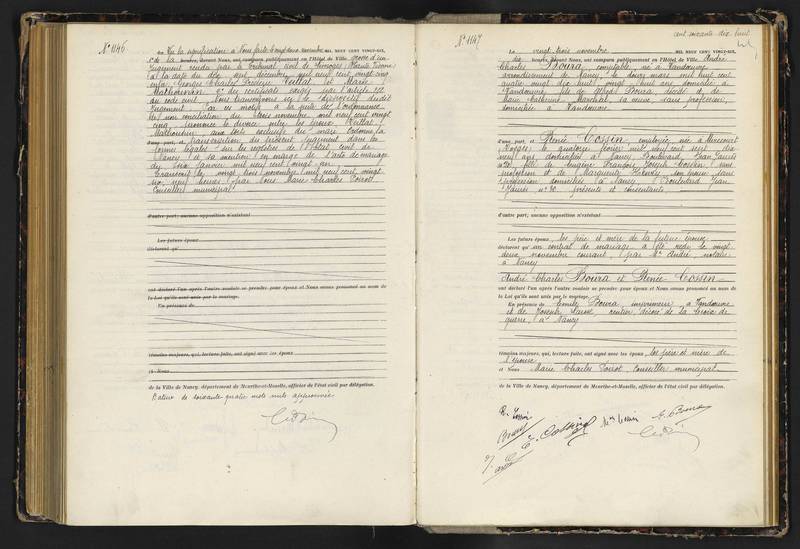 N° 1146
Vu la signification à Nous faite le vingt deux novembre MIL NEUF CENT VINGT-SIX,
1° de la grosse d'un
jugement rendu par le tribunal civil de Limoges (Haute Vienne)
à la date du dix huit décembre mil neuf cent vingt cinq
entre Georges Charles Frédéric et Marie
2° des certificats exigés par l'article 252
du code civil Nous transcrivons ici le dispositif dudit
jugement Par ces motifs à la suite de l'ordonnance
de non conciliation du trois novembre mil neuf cent vingt
cinq, prononce le divorce entre les époux
aux torts exclusifs du mari Ordonne la
transcription du présent jugement dans la
forme légale sur les registres de l'état civil de
Nancy et sa mention en marge de l'acte de mariage
du six janvier mil neuf cent vingt un
Transcrit le vingt trois novembre mil neuf cent vingt
six, neuf heures par Nous Marie Charles Poirot
Conseiller municipal
d'autre part; aucune opposition n'existant
Les futurs époux
déclarent qu'
ont déclaré l'un après l'autre vouloir se prendre pour époux et Nous avons prononcé au nom de
la Loi qu'ils sont unis par le mariage.
En présence de
témoins majeurs, qui, lecture faite, ont signé avec les époux
et Nous
de la Ville de Nancy, département de Meurthe-et-Moselle, officier de l'état civil par délégation.
Rature de soixante quatre mots nuls approuvée
cent soixante dix huit
N° 1147
Le vingt trois novembre MIL NEUF CENT VINGT-SIX,
dix heures, devant Nous, ont comparu publiquement en l'Hôtel de Ville, André
Charles Boura, comptable, né à Vandoeuvre
arrondissement de Nancy le douze mars mil huit cent
quatre vingt dix huit, vingt huit ans domicilié à
Vandoeuvre, fils de Alfred Boura décédé et de
Marie Catherine Marchal sa veuve sans profession,
domiciliée à Vandoeuvre
d'une part, et Renée Cossin, employée née à Mirecourt
(Vosges) le quatorze février mil neuf cent sept, dix
neuf ans domiciliée à Nancy Boulevard Jean Jaurès
n° 30 fille de François Joseph Cossin, sans
profession et de Marguerite son épouse sans
profession domiciliés à Nancy, Boulevard Jean
Jaurès n° 30, présents et consentants
d'autre part; aucune opposition n'existant
Les futurs époux, les père et mère de la future épouse
déclarent qu'un contrat de mariage a été reçu le vingt
deux novembre courant, par Me André notaire
à Nancy
André Charles Boura et Renée Cossin
ont déclaré l'un après l'autre vouloir se prendre pour époux et Nous avons prononcé au nom de
la Loi qu'ils sont unis par le mariage.
En présence de Emile Boura imprimeur à Vandoeuvre
et de rentier décoré de la Croix de
guerre, à Nancy
témoins majeurs, qui, lecture faite, ont signé avec les époux, les père et mère de
l'épouse
et Nous Marie Charles Poirot Conseiller municipal
de la Ville de Nancy, département de Meurthe-et-Moselle, officier de l'état civil par délégation.
R. Cossin
Boura
Cossin
Mme Cossin
E. Boura